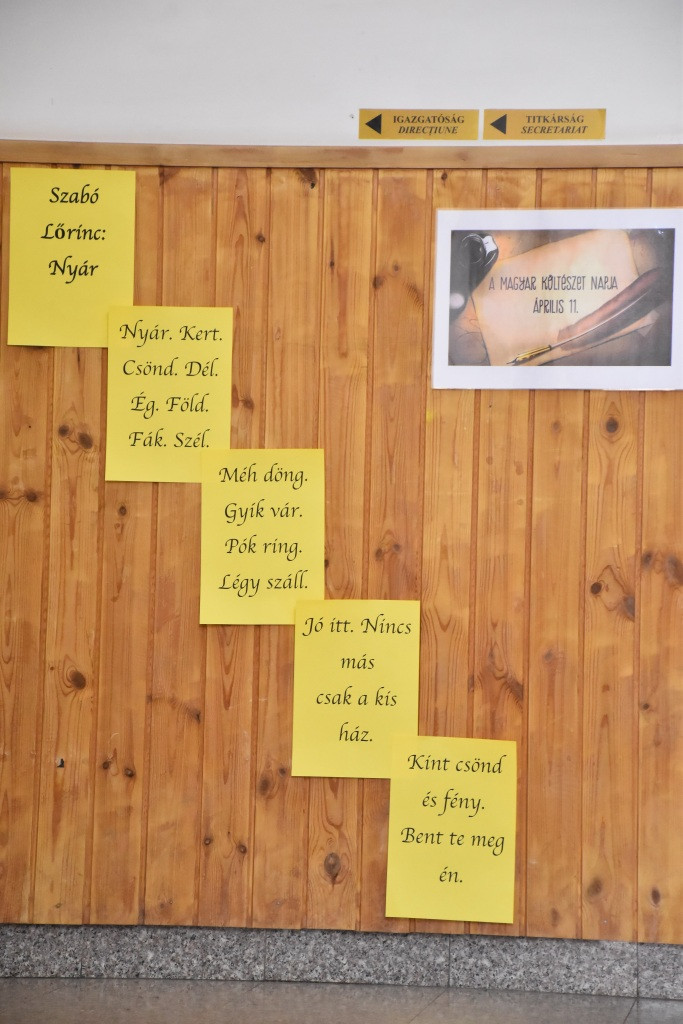 IGAZGATÓSÁG
DIRECȚIUNE
TITKÁRSÁG
SECRETARIAT
Szabó
Lőrinc:
Nyár
A MAGYAR KÖLTÉSZET NAPJA
ÁPRILIS 11.
Nyár. Kert.
Csönd. Dél.
Ég. Föld.
Fák. Szél.
Méh döng.
Gyík vár.
Pók ring.
Légy száll.
Jó itt. Nincs
más
csak a kis
ház.
Kint csönd
és fény.
Bent te meg
én.